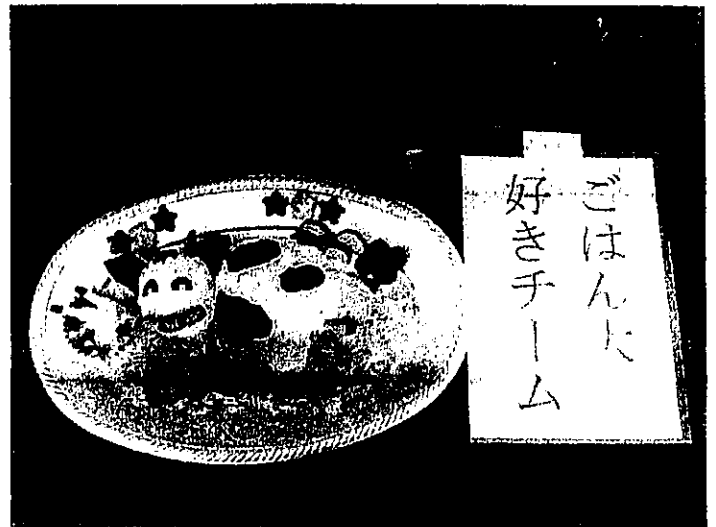 ごはん大
好きチーム